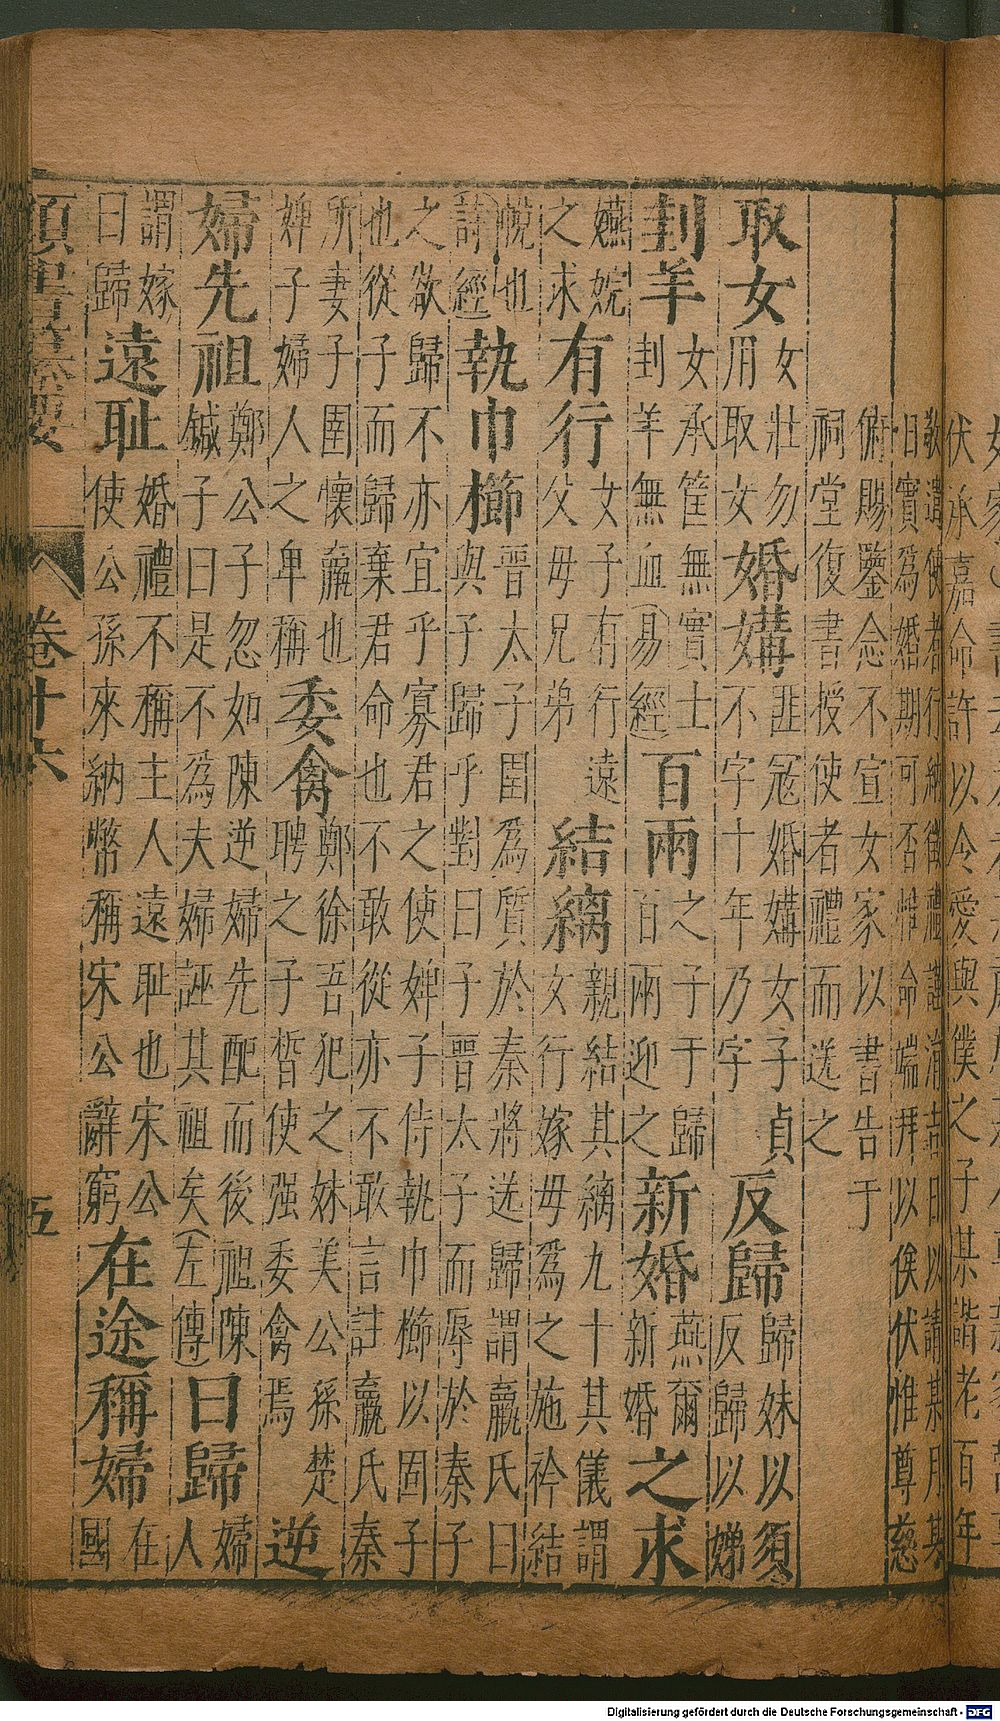 伏承嘉命許以今愛與僕之子某諧老百年
敬遣使者行納徵禮謹涓吉日以請某月某
日實爲婚期可否惟命端拜以俟伏惟尊慈
俯賜鑒念不宣女家以書告于
祠堂復書授使者禮而送之
取女
女壯勿
用取女
婚媾
匪冦婚媾女子貞
不字十年乃字
反歸
歸妹以須
反歸以娣
刲羊
女承筐無實士
刲羊無血(易經)
百兩
之子于歸
百兩迎之
新婚
燕爾
新婚
之求
嬿婉
之求
有行
女子有行遠
父母兄弟
結縭
親結其縭九十其儀謂
女行嫁母爲之施衿結
帨也
(詩經)
執巾櫛
晉太子圉爲質於秦將送歸謂嬴氏曰
與子歸乎對曰子晉太子而辱於秦子
之欲歸不亦宜乎寡君之使婢子侍執巾櫛以固子
也從子而歸棄君命也不敢從亦不敢言註嬴氏秦
所妻子圉懷嬴也
婢子婦人之卑稱
委禽
鄭徐吾犯之妹美公孫楚
聘之子晳使强委禽焉
逆
婦先祖
鄭公子忽如陳逆婦先配而後祖陳
鍼子曰是不爲夫婦誣其祖矣(左傳)
曰歸
婦
人
謂嫁
曰歸
遠耻
婚禮不稱主人遠耻也宋公
使公孫來納幣稱宋公辭窮
在途稱婦
在
國
卷十六
五
Digitalisierung gefördert durch die Deutsche Forschungsgemeinschaft - DFG